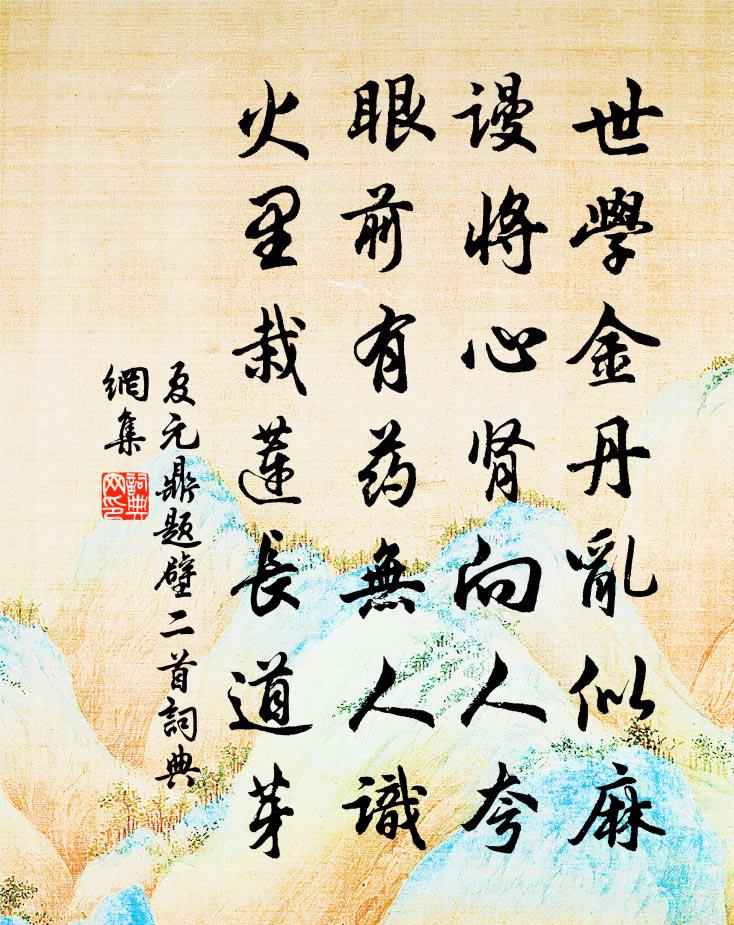 世學金丹亂似麻
謾將心腎向人夸
眼前有药無人識
火里栽蓮長道芽
夏元鼎題壁二首詞典
網集
詞典
网印